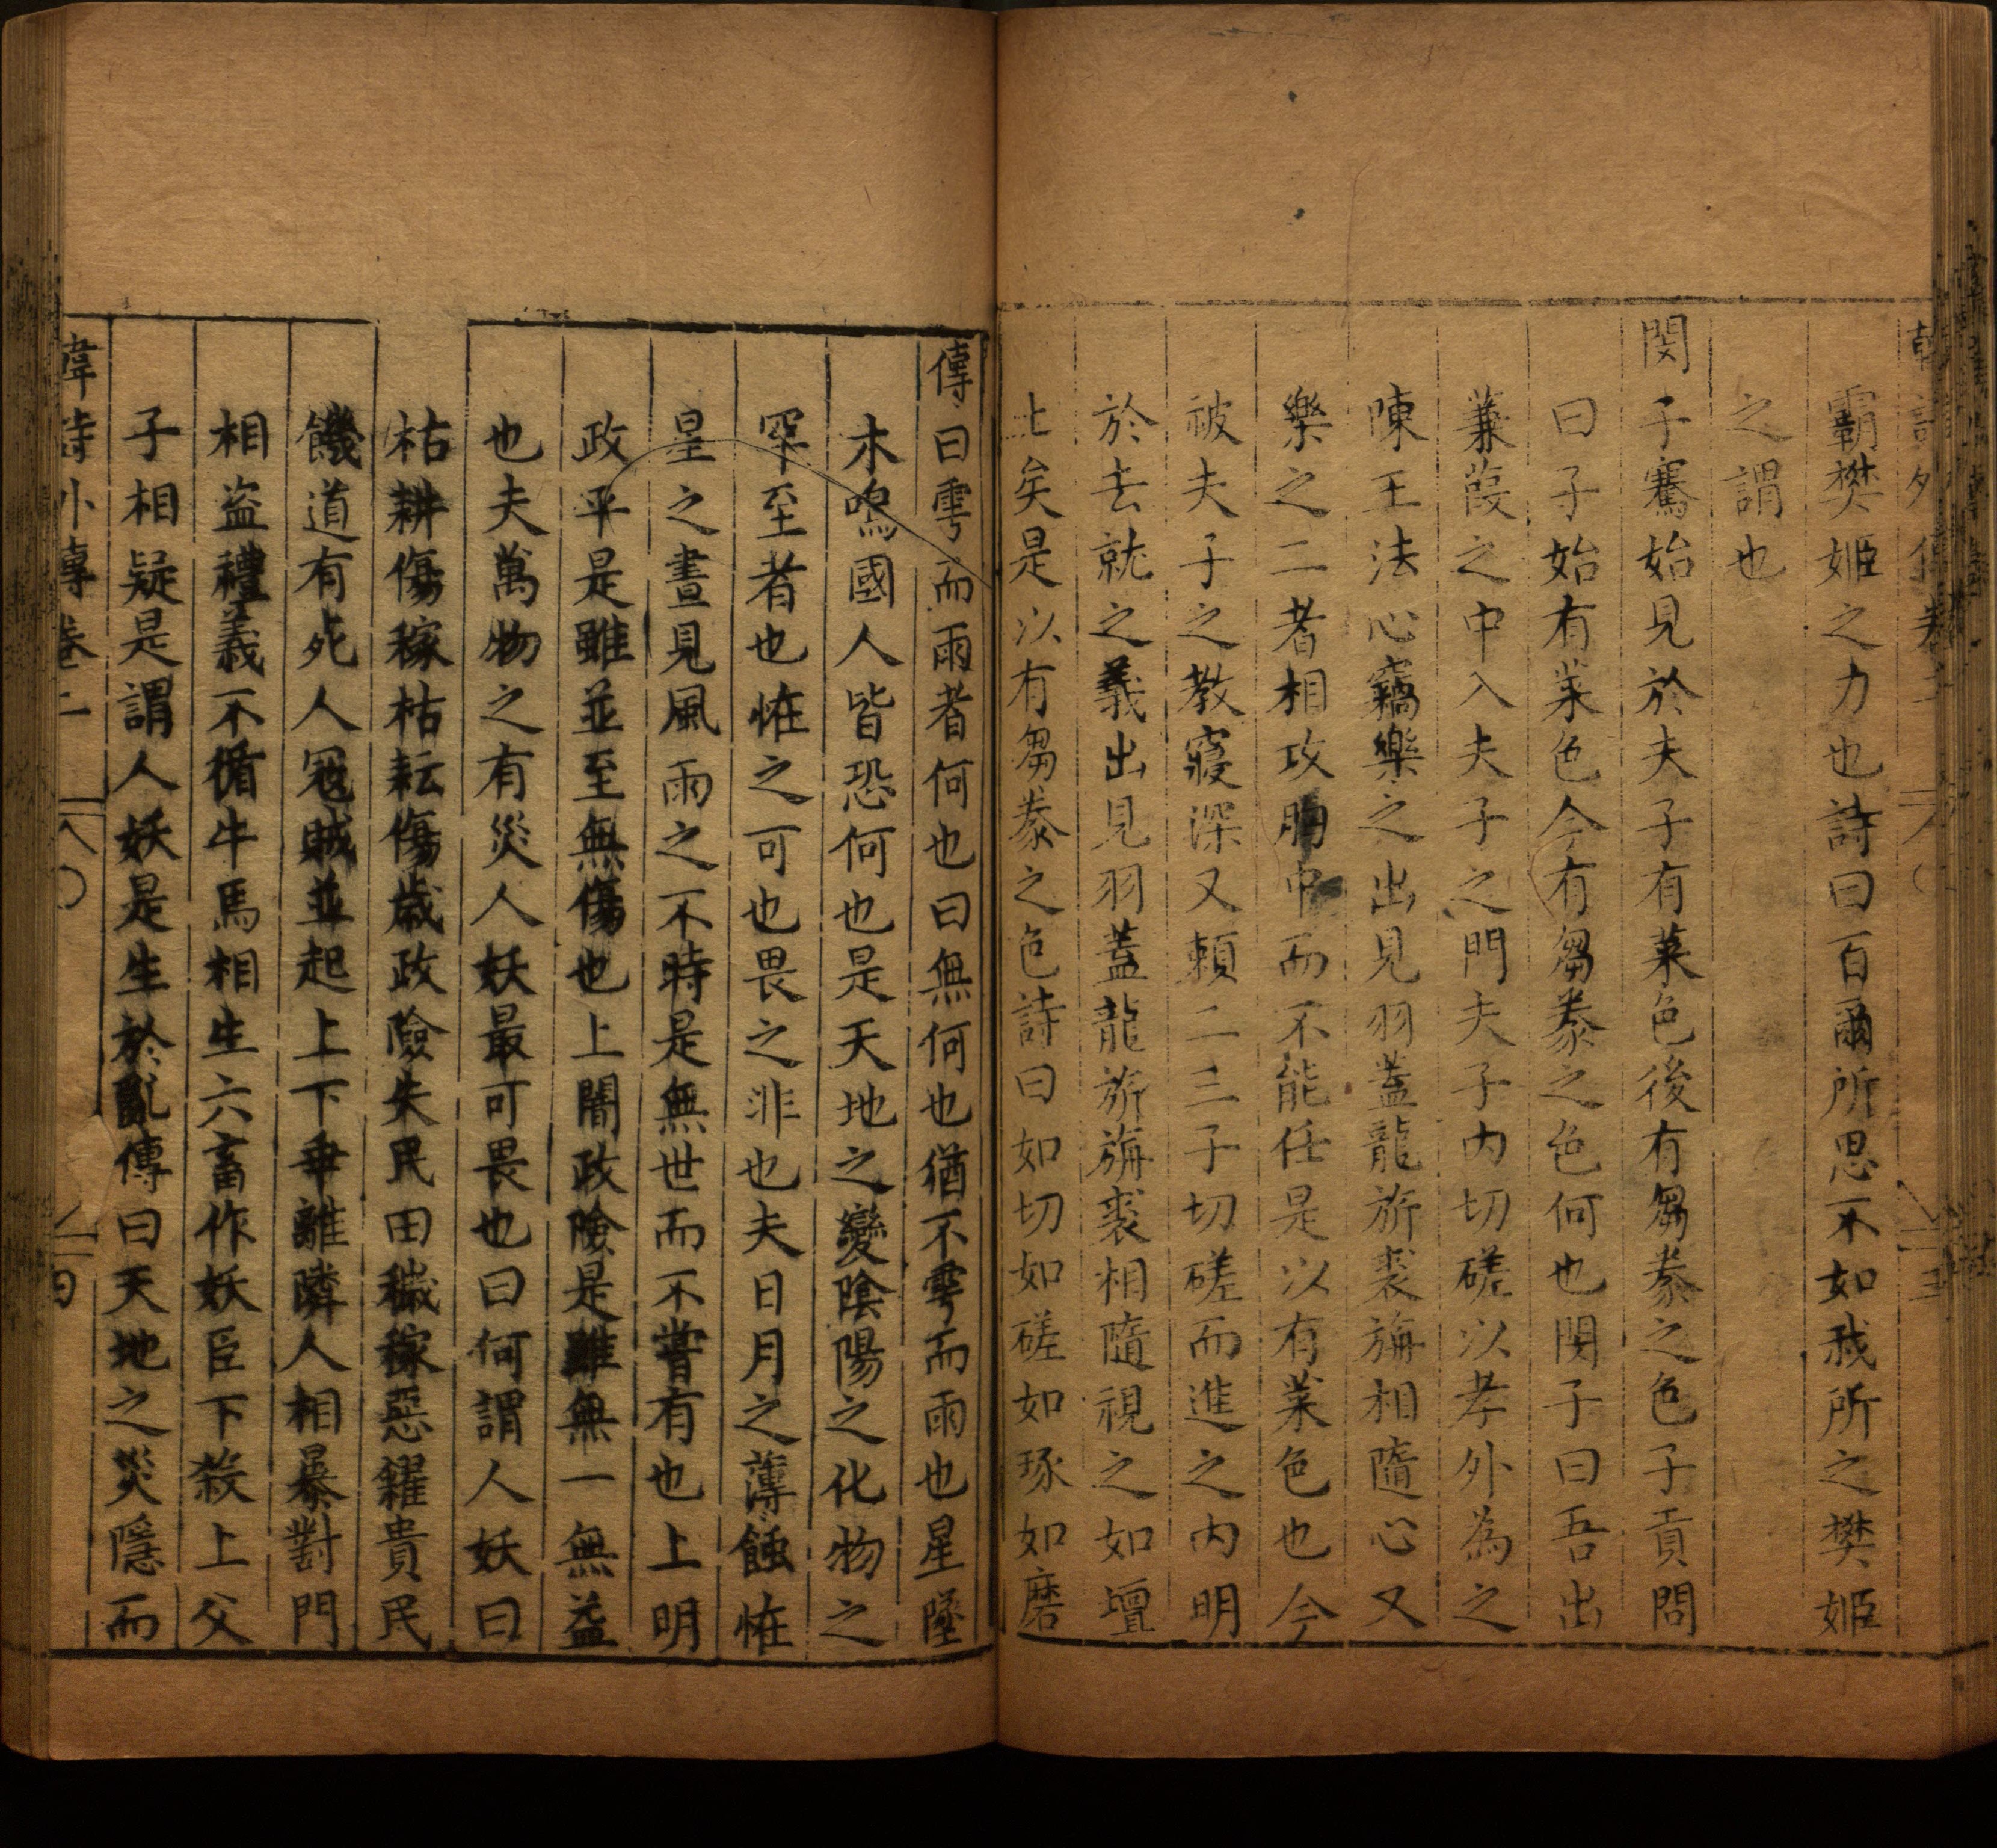 霸樊姬之力也詩曰百爾所思不如我所之樊姬
之謂也
閔子騫始見於夫子有菜色後有芻豢之色子貢問
曰子始有菜色今有芻豢之色何也閔子曰吾出
蒹葭之中入夫子之門夫子内切磋以孝外為之
陳王法心竊樂之出見羽蓋龍旂裘旃相隨心又
樂之二者相攻胸中而不能任是以有菜色也今
被夫子之教寖深又頼二三子切磋而進之内明
於去就之義出見羽蓋龍旂旃裘相隨視之如壇
土矣是以有芻豢之色詩曰如切如磋如琢如磨
傳曰雩而雨者何也曰無何也猶不雩而雨也星墜
木鳴國人皆恐何也是天地之變陰陽之化物之
罕至者也恠之可也畏之非也夫日月之薄蝕恠
星之晝見風雨之不時是無世而不嘗有也上明
政平是雖並至無傷也上闇政險是雖無一無益
也夫萬物之有災人妖最可畏也曰何謂人妖曰
枯耕傷稼枯耘傷歲政險失民田穢稼惡糴貴民
饑道有死人冦賊並起上下乖離隣人相暴對門
相盜禮義不循牛馬相生六畜作妖臣下殺上父
子相疑是謂人妖是生於亂傳曰天地之災隱而
韋詩外傳卷二 八〇 四